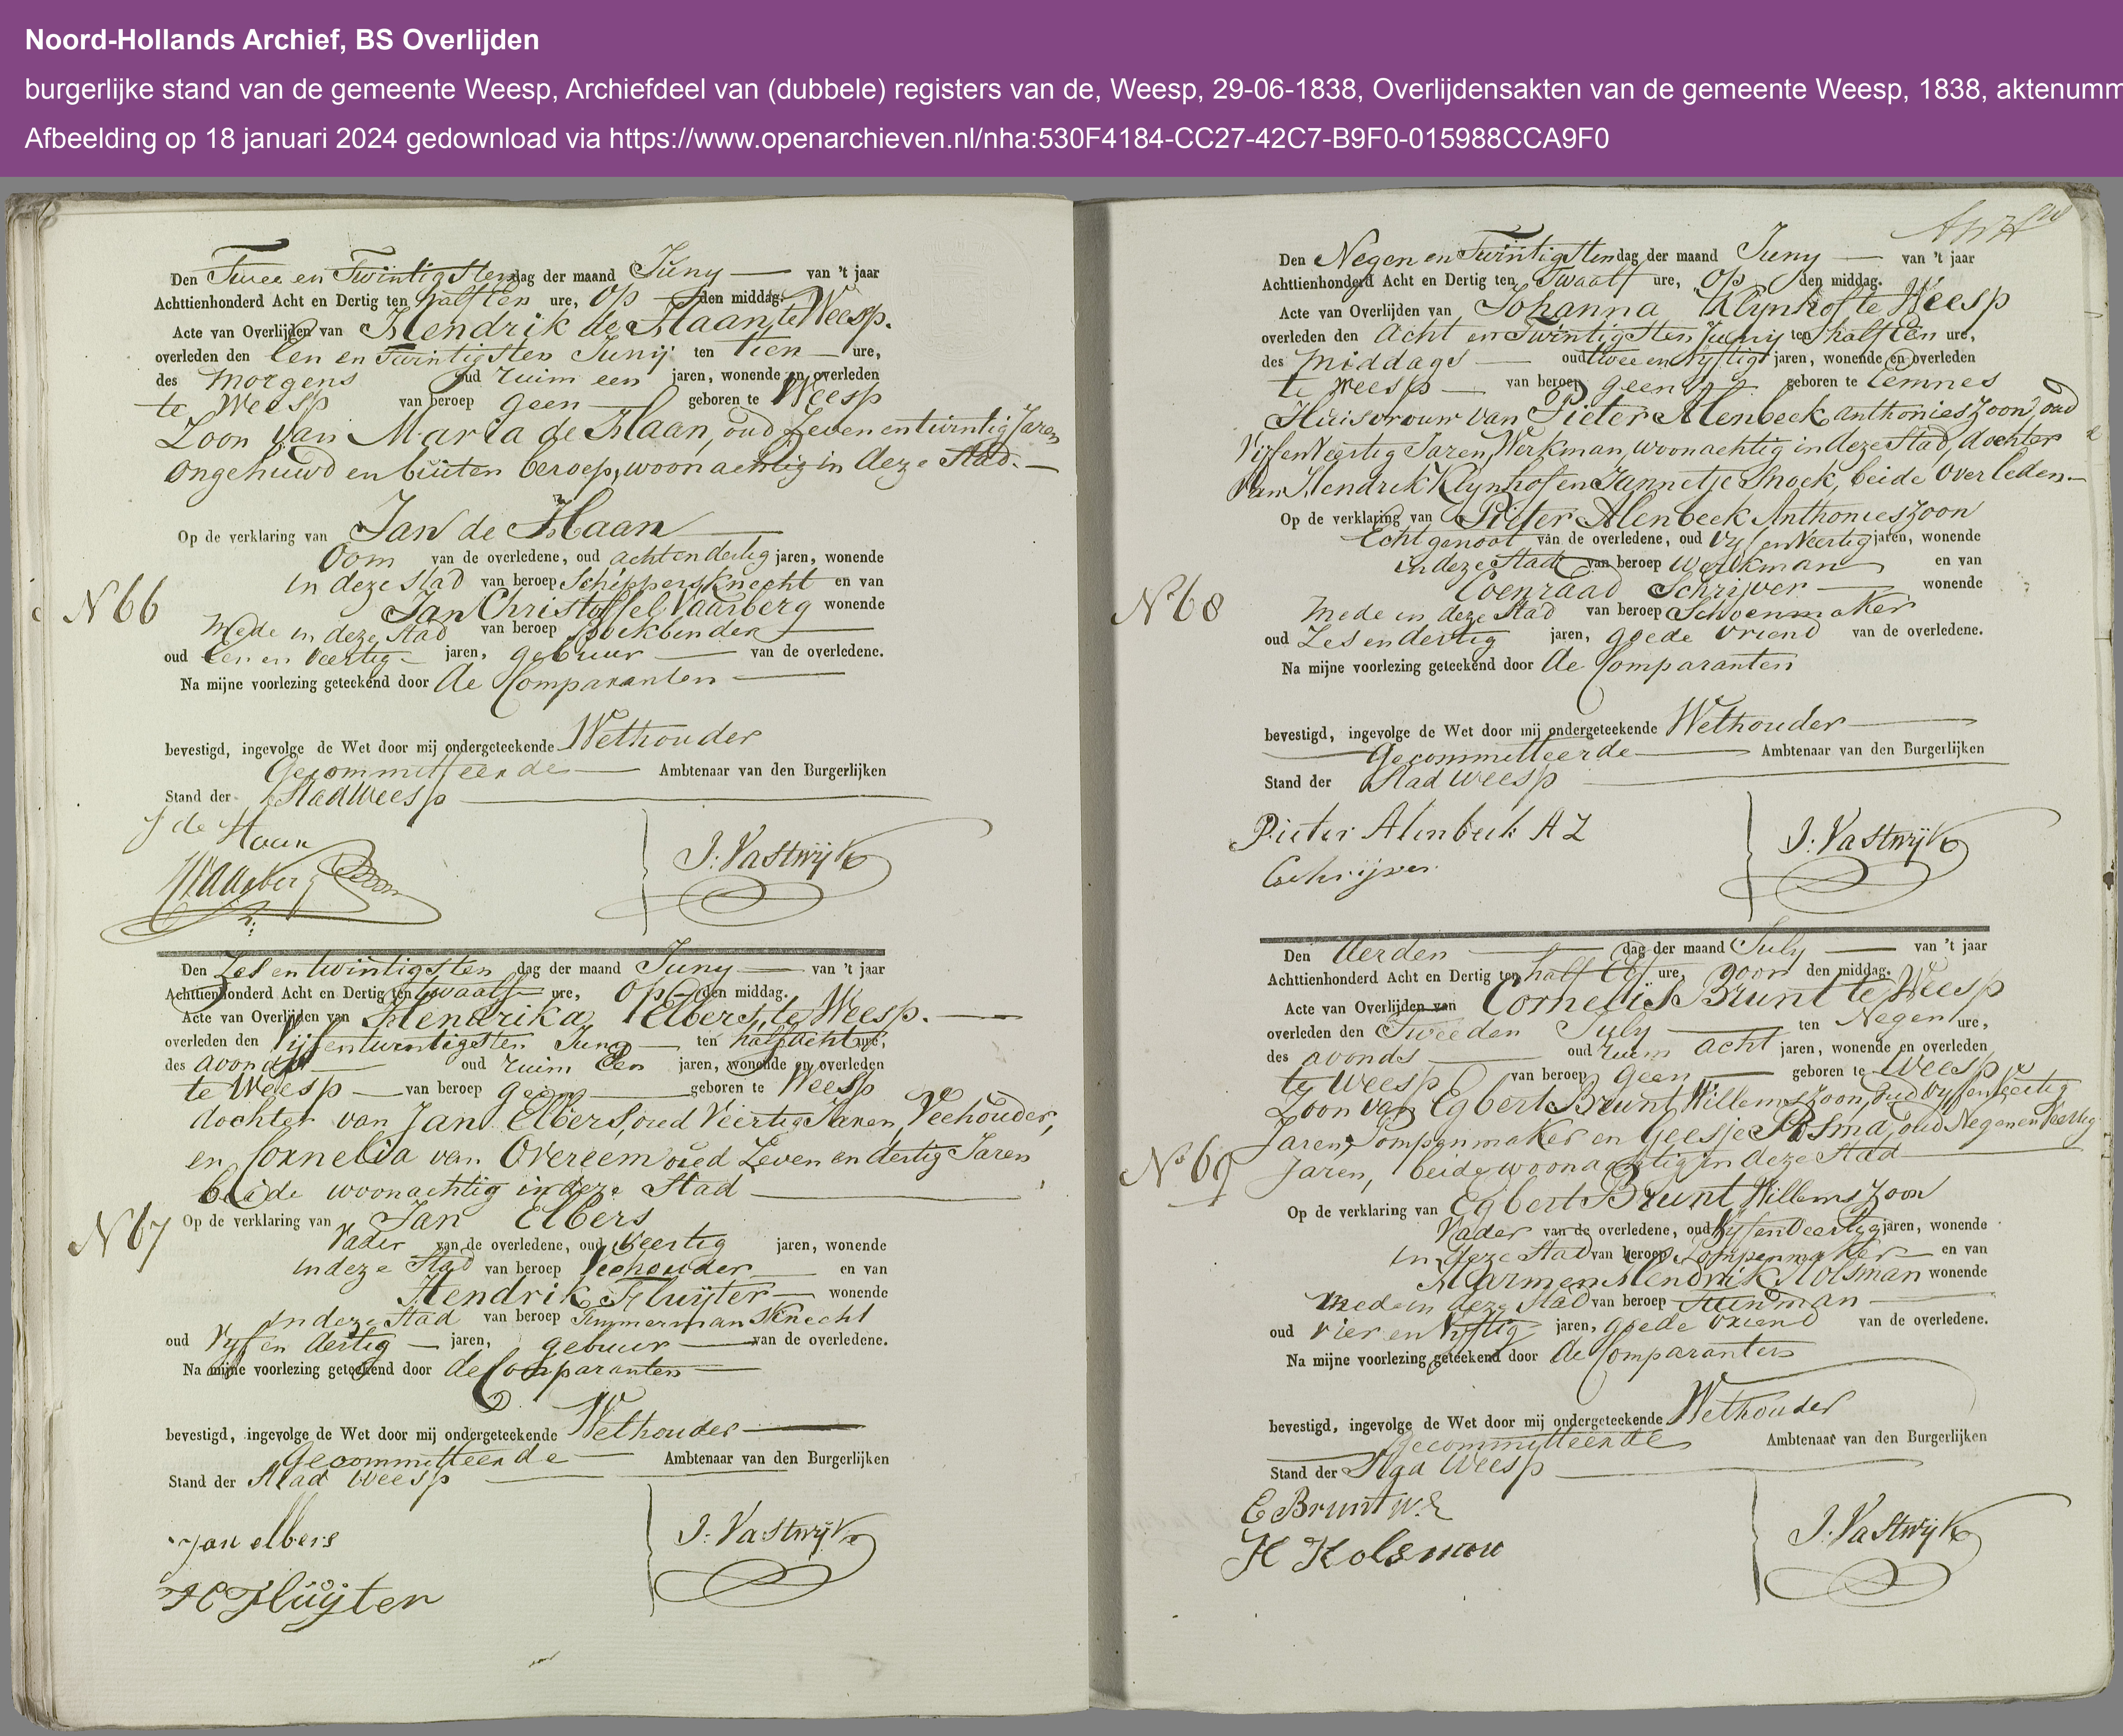 Noord-Hollands Archief, BS Overlijden
burgerlijke stand van de gemeente Weesp, Archiefdeel van (dubbele) registers van de, Weesp, 29-06-1838, Overlijdensakten van de gemeente Weesp, 1838, aktenumm
Afbeelding op 18 januari 2024 gedownload via https://www.openarchieven.nl/nha:530F4184-CC27-42C7-B9F0-015988CCA9F0
Den Twee en Twintigsten dag der maand Juny van 't jaar
Achttienhonderd Acht en Dertig ten half Een ure, Op den middag.
Acte van Overlijden van Hendrik de Haan, te Weesp.
overleden den Een en Twintigsten Junij ten tien ure,
des Morgens oud ruim een jaren, wonende en overleden
te Weesp van beroep geen geboren te Weesp
Zoon van Maria de Haan, oud Zeven en twintig Jaren
Ongehuwd en buiten beroep, woonachtig in deze Stad.
Op de verklaring van Jan de Haan
Oom van de overledene, oud acht en dertig jaren, wonende
in deze Stad van beroep Schippersknecht en van
N 66
Jan Christoffel Vaarberg wonende
Mede in deze Stad van beroep Boekbinder
oud Een en Veertig jaren, gebuur van de overledene.
Na mijne voorlezing geteekend door de Comparanten
bevestigd, ingevolge de Wet door mij ondergeteekende Wethouder
Gecommitteerde Ambtenaar van den Burgerlijken
Stand der Stad Weesp
J de Haan
J. Vastwijk
Den Zes en twintigsten dag der maand Juny van 't jaar
Achttienhonderd Acht en Dertig ten twaalf ure, Op den middag.
Acte van Overlijden van Hendrika Elbers, te Weesp.
overleden den Vijf en twintigsten Juny ten half acht ure,
des avonds oud ruim Een jaren, wonende en overleden
te Weesp van beroep geen geboren te Weesp
dochter van Jan Elbers, oud Veertig Jaren, Veehouder,
en Cornelia van Overeem oud Zeven en dertig Jaren
beide woonachtig in deze Stad
N 67
Op de verklaring van Jan Elbers
Vader van de overledene, oud Veertig jaren, wonende
in deze Stad van beroep Veehouder en van
Hendrik Fluijter wonende
in deze Stad van beroep Timmermans Knecht
oud Vyf en dertig jaren, gebuur van de overledene.
Na mijne voorlezing geteekend door de Comparanten
bevestigd, ingevolge de Wet door mij ondergeteekende Wethouder
Gecommitteerde Ambtenaar van den Burgerlijken
Stand der Stad Weesp
Jan elbers
J. Vastwijk
H Fluijter
Den Negen en Twintigsten dag der maand Juny van 't jaar
Achttienhonderd Acht en Dertig ten Twaalf ure, Op den middag.
Acte van Overlijden van Johanna Klynhof te Weesp
overleden den Acht en Twintigsten Juny ten half Een ure,
des middags oud twee en Vyftig jaren, wonende en overleden
te Weesp van beroep geen geboren te Eemnes
Huisvrouw van Pieter Alenbeek Anthonieszoon, oud
Vijf en Veertig Jaren, Werkman, woonachtig in deze Stad, dochter
van Hendrik Klynhof en Jannetje Snoek, beide Overleden
Op de verklaring van Pieter Alenbeek Anthonieszoon
Echtgenoot van de overledene, oud Vyf en Veertig jaren, wonende
in deze Stad van beroep Werkman en van
N 68
Coenraad Schrijver wonende
Mede in deze Stad van beroep Schoenmaker
oud Zes en dertig jaren, goede Vriend van de overledene.
Na mijne voorlezing geteekend door de Comparanten
bevestigd, ingevolge de Wet door mij ondergeteekende Wethouder
Gecommitteerde Ambtenaar van den Burgerlijken
Stand der Stad Weesp
Pieter Alenbeek A Z
J. Vastwijk
C Schrijver
Den derden dag der maand July van 't jaar
Achttienhonderd Acht en Dertig ten half Elf ure, Voor den middag.
Acte van Overlijden van Cornelis Brunt te Weesp
overleden den Tweeden July ten Negen ure,
des avonds oud ruim acht jaren, wonende en overleden
te Weesp van beroep geen geboren te Weesp
Zoon van Egbert Brunt Willemszoon, oud Vyf en Veertig
Jaren, Pompenmaker en Geesje Posma, oud Negen en Veertig
N 69
Jaren, beide woonachtig in deze Stad
Op de verklaring van Egbert Brunt Willemszoon
Vader van de overledene, oud Vyf en Veertig jaren, wonende
in deze Stad van beroep Pompenmaker en van
Harmen Hendrik Kolsman wonende
mede in deze Stad van beroep Tuinman
oud vier en Vyftig jaren, goede Vriend van de overledene.
Na mijne voorlezing geteekend door de Comparanten
bevestigd, ingevolge de Wet door mij ondergeteekende Wethouder
Gecommitteerde Ambtenaar van den Burgerlijken
Stand der Stad Weesp
E Brunt W.Z
J. Vastwijk
H Kolsman